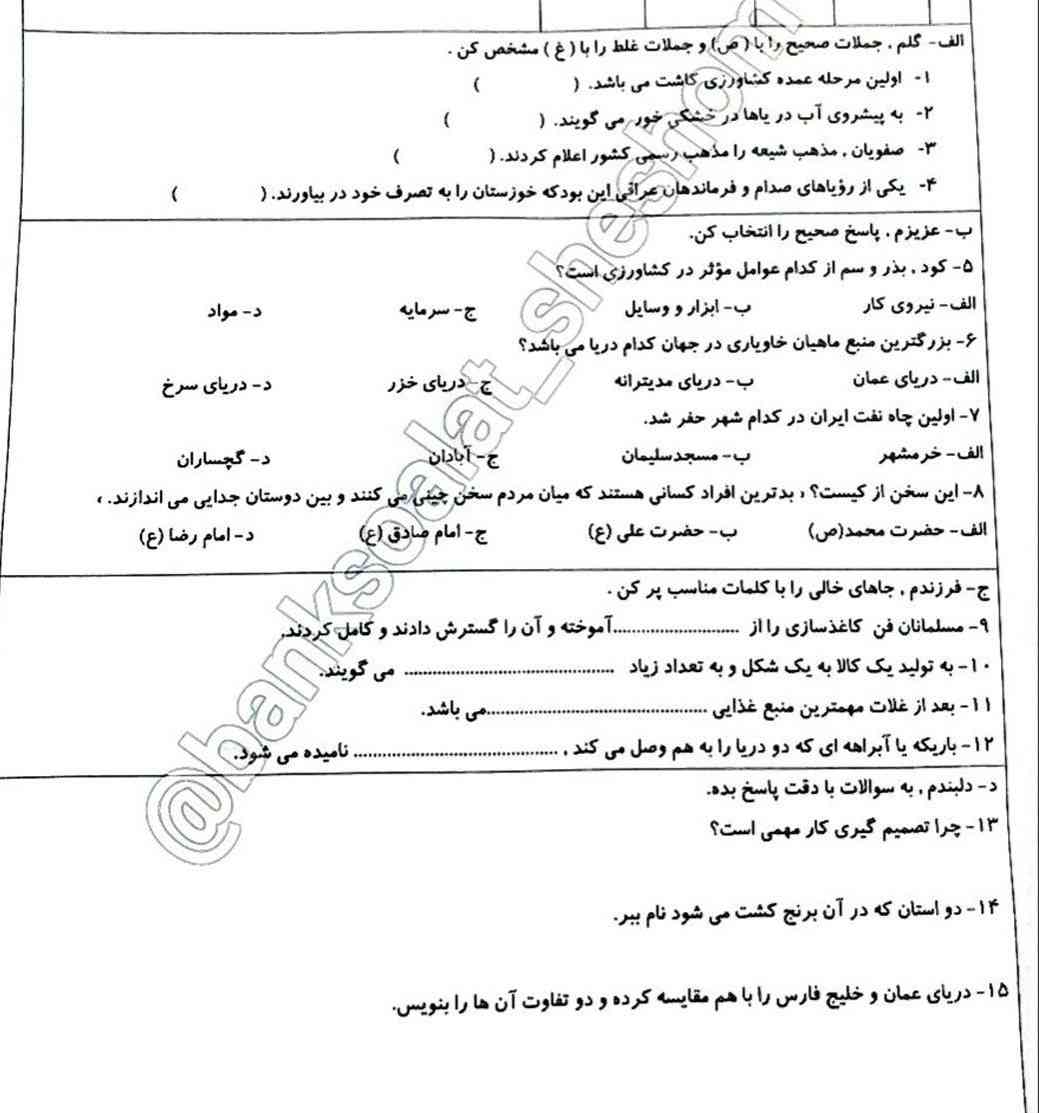 الف- گلم ، جملات صحیح را با ( ص) و جملات غلط را با ( غ ) مشخص کن .
۱- اولین مرحله عمده کشاورزی کاشت می باشد. ( )
۲- به پیشروی آب در یاها در خشکی خور می گویند. ( )
۳- صفویان ، مذهب شیعه را مذهب رسمی کشور اعلام کردند. ( )
۴- یکی از رؤیاهای صدام و فرماندهان عراقی این بودکه خوزستان را به تصرف خود در بیاورند. ( )
ب- عزیزم ، پاسخ صحیح را انتخاب کن.
۵- کود ، بذر و سم از کدام عوامل مؤثر در کشاورزی است؟
الف- نیروی کار ب- ابزار و وسایل ج- سرمایه د- مواد
۶- بزرگترین منبع ماهیان خاویاری در جهان کدام دریا می باشد؟
الف- دریای عمان ب- دریای مدیترانه ج- دریای خزر د- دریای سرخ
۷- اولین چاه نفت ایران در کدام شهر حفر شد.
الف- خرمشهر ب- مسجدسلیمان ج- آبادان د- گچساران
۸- این سخن از کیست؟ « بدترین افراد کسانی هستند که میان مردم سخن چینی می کنند و بین دوستان جدایی می اندازند. »
الف- حضرت محمد(ص) ب- حضرت علی (ع) ج- امام صادق (ع) د- امام رضا (ع)
ج- فرزندم ، جاهای خالی را با کلمات مناسب پر کن .
۹- مسلمانان فن کاغذسازی را از ..........................آموخته و آن را گسترش دادند و کامل کردند.
۱۰- به تولید یک کالا به یک شکل و به تعداد زیاد ............................................ می گویند.
۱۱- بعد از غلات مهمترین منبع غذایی ..............................................می باشد.
۱۲- باریکه یا آبراهه ای که دو دریا را به هم وصل می کند ، ........................................... نامیده می شود.
د- دلبندم ، به سوالات با دقت پاسخ بده.
۱۳- چرا تصمیم گیری کار مهمی است؟
۱۴- دو استان که در آن برنج کشت می شود نام ببر.
۱۵- دریای عمان و خلیج فارس را با هم مقایسه کرده و دو تفاوت آن ها را بنویس.
@banksoalat_sheshom